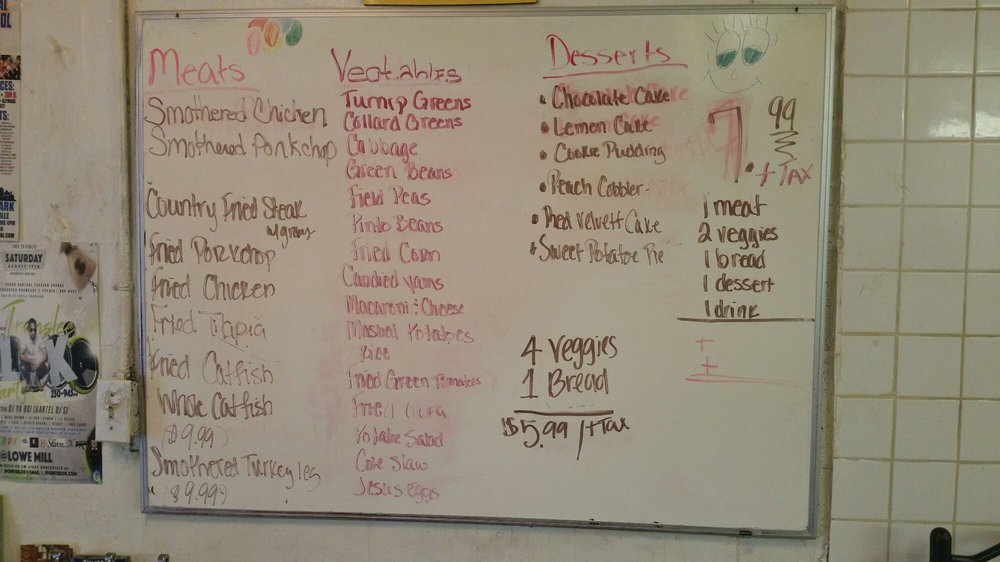 Meats
Smothered Chicken
Smothered Porkchop
Country Fried Steak
w/gravy
Fried Porkchop
Fried Chicken
Fried Tilapia
Fried Catfish
Whole Catfish
($9.99)
Smothered Turkey legs
($9.99)
Vegtables
Turnip Greens
Collard Greens
Cabbage
Green Beans
Field Peas
Pinto Beans
Fried Corn
Candied Yams
Macaroni & Cheese
Mashed Potatoes
Rice
Fried Green Tomatoes
Fried Okra
Potatoe Salad
Cole Slaw
Desserts
• Chocolate Cake
• Lemon Cake
• Cookie Pudding
• Peach Cobbler
• Red Velvett Cake
• Sweet Potatoe Pie
4 Veggies
1 Bread
$5.99 /+Tax
7.99
+ TAX
1 meat
2 veggies
1 bread
1 dessert
1 drink
+
+
SATURDAY
@LOWE MILL